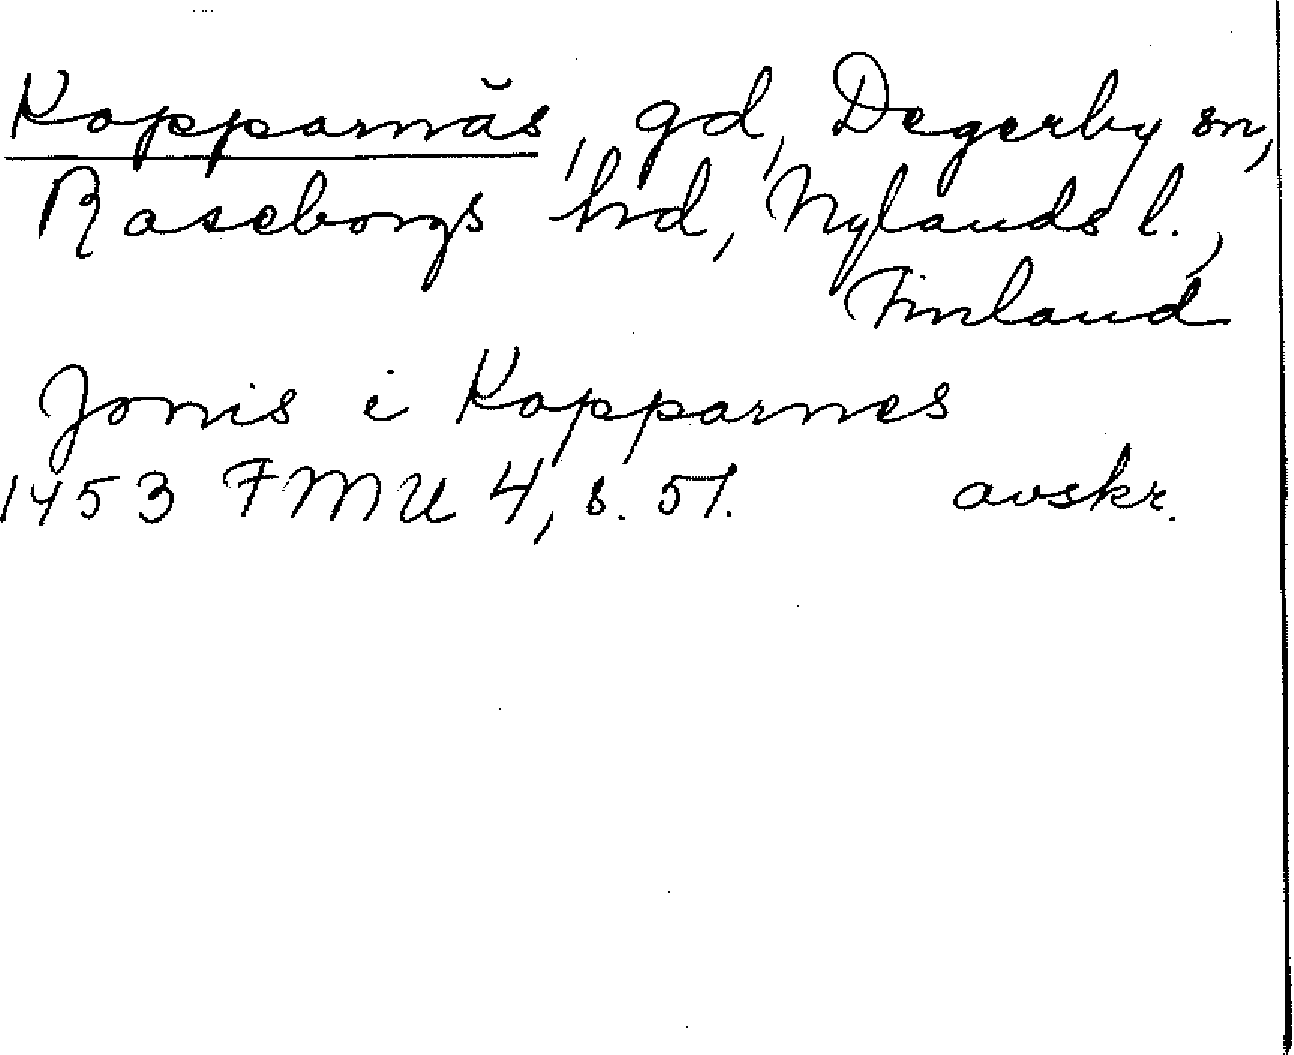 Kopparnäs, gd, Degerby sn,
Raseborgs hd, Nylands l.,
Finland
Jonis i Kopparnes
1453 FMU 4, s. 51. avskr.